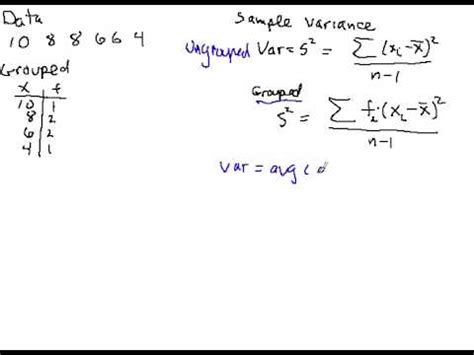 Data
10 8 8 6 6 4
Grouped
x f
10 1
8 2
6 2
4 1
Sample Variance
Ungrouped Var = S² = Σ(xᵢ-x̄)² / n-1
Grouped
S² = Σfᵢ·(xᵢ-x̄)² / n-1
Var = avg (